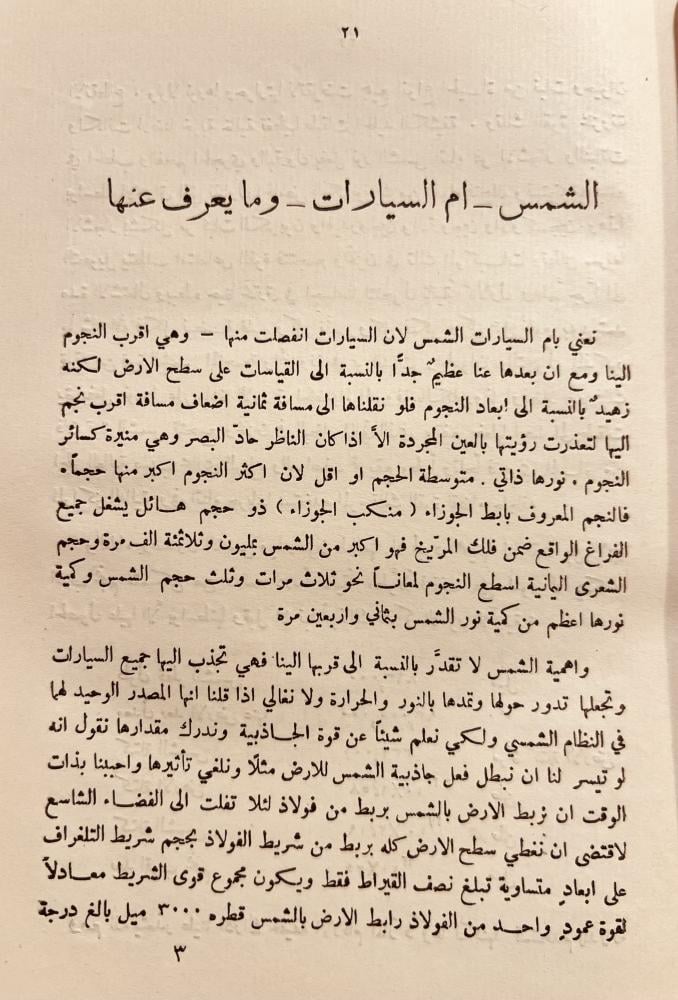 ٢١
الشمس _ ام السيارات _ وما يعرف عنها
نعني بام السيارات الشمس لان السيارات انفصلت منها — وهي اقرب النجوم
الينا ومع ان بعدها عنا عظيمٌ جدًّا بالنسبة الى القياسات على سطح الارض لكنه
زهيدٌ بالنسبة الى ابعاد النجوم فلو نقلناها الى مسافة ثمانية اضعاف مسافة اقرب نجم
اليها لتعذرت رؤيتها بالعين المجردة الاَّ اذا كان الناظر حادّ البصر وهي منيرة كسائر
النجوم . نورها ذاتي . متوسطة الحجم او اقل لان اكثر النجوم اكبر منها حجماً .
فالنجم المعروف بابط الجوزاء ( منكب الجوزاء ) ذو حجم هائل يشغل جميع
الفراغ الواقع ضمن فلك المرّيخ فهو اكبر من الشمس بمليون وثلاثمئة الف مرة وحجم
الشعرى اليمانية اسطع النجوم لمعاناً نحو ثلاث مرات وثلث حجم الشمس وكمية
نورها اعظم من كمية نور الشمس بثماني واربعين مرة
واهمية الشمس لا تقدَّر بالنسبة الى قربها الينا فهي تجذب اليها جميع السيارات
وتجعلها تدور حولها وتمدها بالنور والحرارة ولا نغالي اذا قلنا انها المصدر الوحيد لهما
في النظام الشمسي ولكي نعلم شيئاً عن قوة الجاذبية وندرك مقدارها نقول انه
لو تيسر لنا ان نبطل فعل جاذبية الشمس للارض مثلًا ونلغي تأثيرها واحببنا بذات
الوقت ان نربط الارض بالشمس بربط من فولاذ لئلا تفلت الى الفضاء الشاسع
لاقتضى ان نغطي سطح الارض كله بربط من شريط الفولاذ بحجم شريط التلغراف
على ابعادٍ متساوية تبلغ نصف القيراط فقط ويكون مجموع قوى الشريط معادلاً
لقوة عمودٍ واحد من الفولاذ رابط الارض بالشمس قطره ٣٠٠٠ ميل بالغ درجة
٣